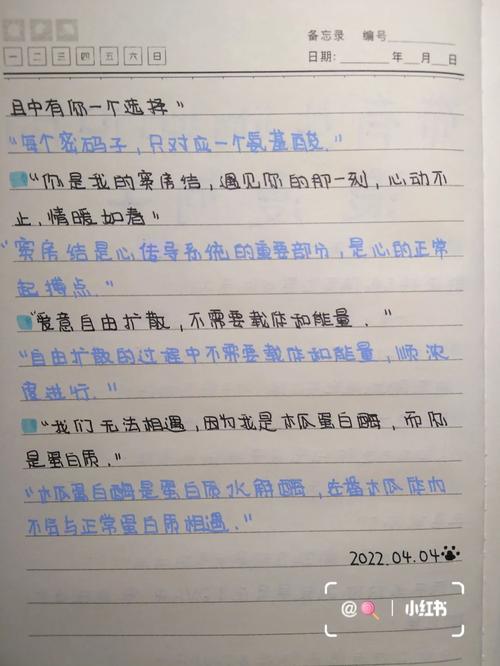 备忘录 编号
一 二 三 四 五 六 日
日期: 年 月 日
且中有你一个选择”
“每个密码子,只对应一个氨基酸.”
“你是我的窦房结,遇见你的那一刻,心动不
止,情暖如春”
“窦房结是心传导系统的重要部分,是心的正常
起搏点.”
“爱意自由扩散,不需要载体和能量.”
“自由扩散的过程中不需要载体和能量,顺浓
度进行.”
“我们无法相遇,因为我是木瓜蛋白酶,而你
是蛋白质.”
“木瓜蛋白酶是蛋白质水解酶,在番木瓜体内
不会与正常蛋白质相遇.”
2022.04.04
@🍭 | 小红书